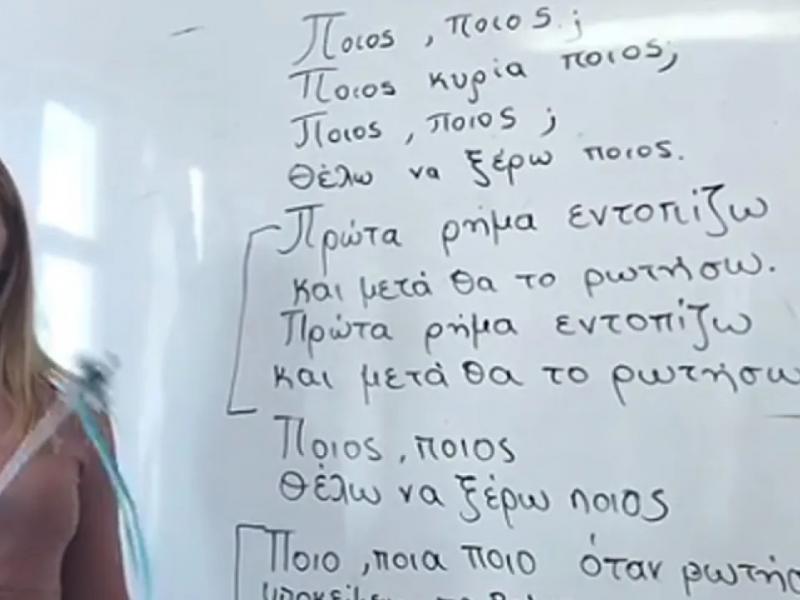 Ποιος , ποιος ;
Ποιος κυρία ποιος;
Ποιος , ποιος ;
Θέλω να ξέρω ποιος.
Πρώτα ρήμα εντοπίζω
και μετά θα το ρωτήσω.
Πρώτα ρήμα εντοπίζω
και μετά θα το ρωτήσω
Ποιος , ποιος
Θέλω να ξέρω ποιος
Ποιο , ποια ποιο όταν